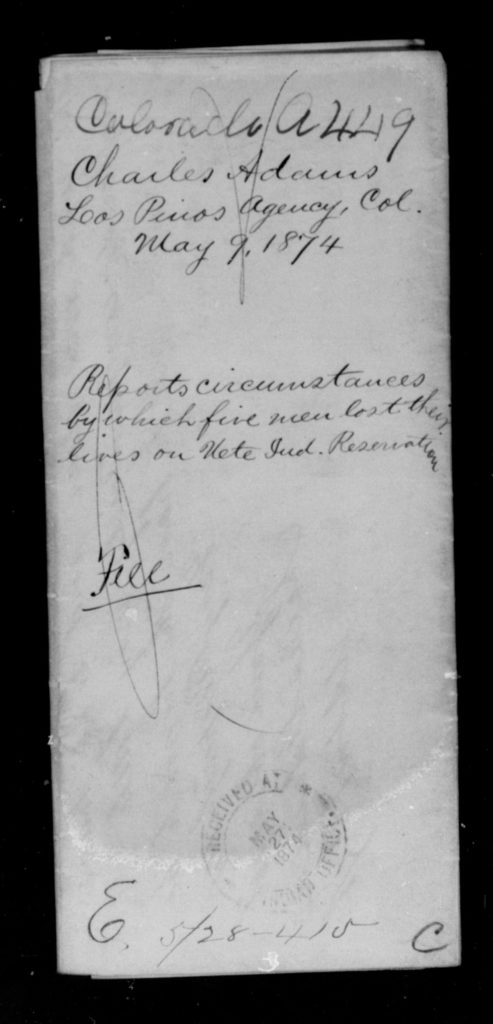 Colorado / A 449
Charles Adams
Los Pinos Agency, Col.
May 9, 1874
Reports circumstances
by which five men lost their
lives on Uete Ind. Reservation
File
RECEIVED AT
MAY
27
1874
INDIAN OFFICE
E. 5/28-
C